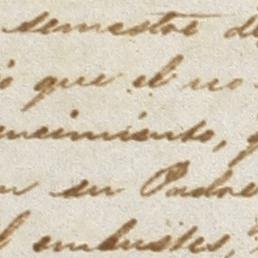 semestre de
que el no
vencimiento,
en su Padre
el embustes,